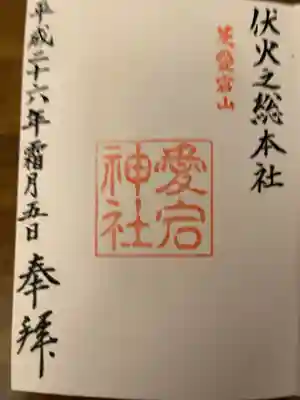 伏火之総本社
愛宕山
愛宕
神社
平成二十六年霜月五日 奉拝